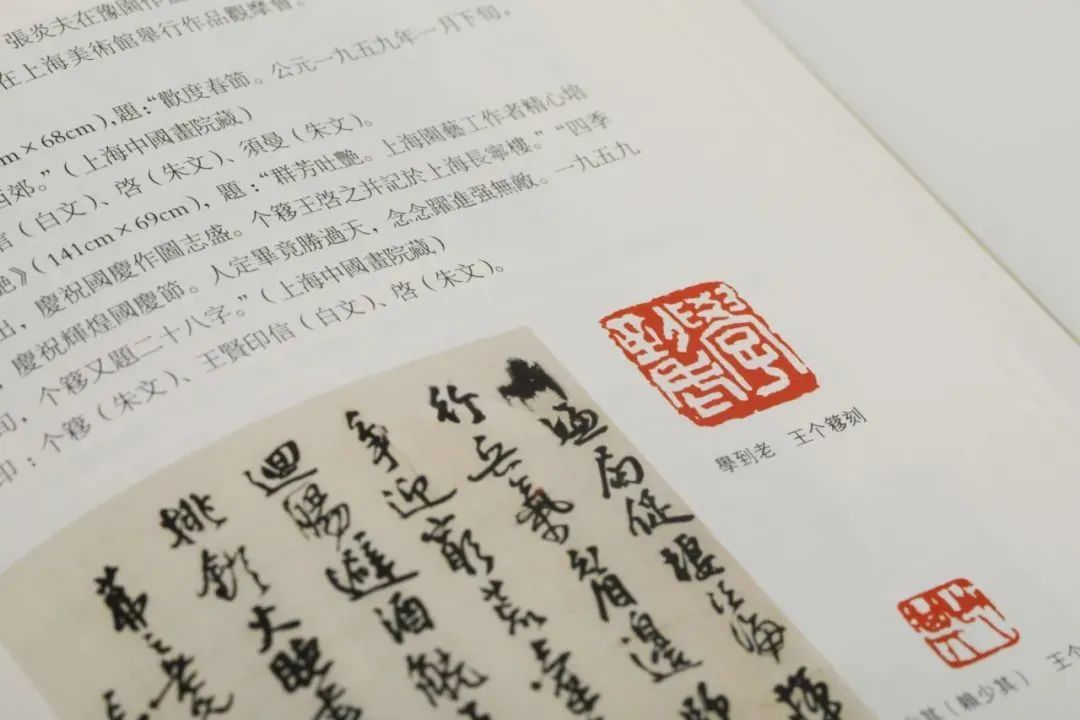 張炎夫在豫園作
在上海美術館舉行作品觀摩會。
cm×68cm),題:“歡度春節。公元一九五九年一月下旬,
西郊。”(上海中國畫院藏)
信(白文)、啓(朱文)、須曼(朱文)。
艷》(141cm×69cm),題:“群芳吐艷。上海園藝工作者精心培
出,慶祝國慶作圖志盛。个簃王啓之并記於上海長寧樓。”“四季
,慶祝輝煌國慶節。人定畢竟勝過天,念念躍進强無敵。一九五九
旬,个簃又題二十八字。”(上海中國畫院藏)
印:个簃(朱文)、王賢印信(白文)、啓(朱文)。
學到老 王个簃刻
其(賴少其) 王个
局促堰江海
行兵氣
爭迎窮荒
迴腸避酒觥
挑釭大